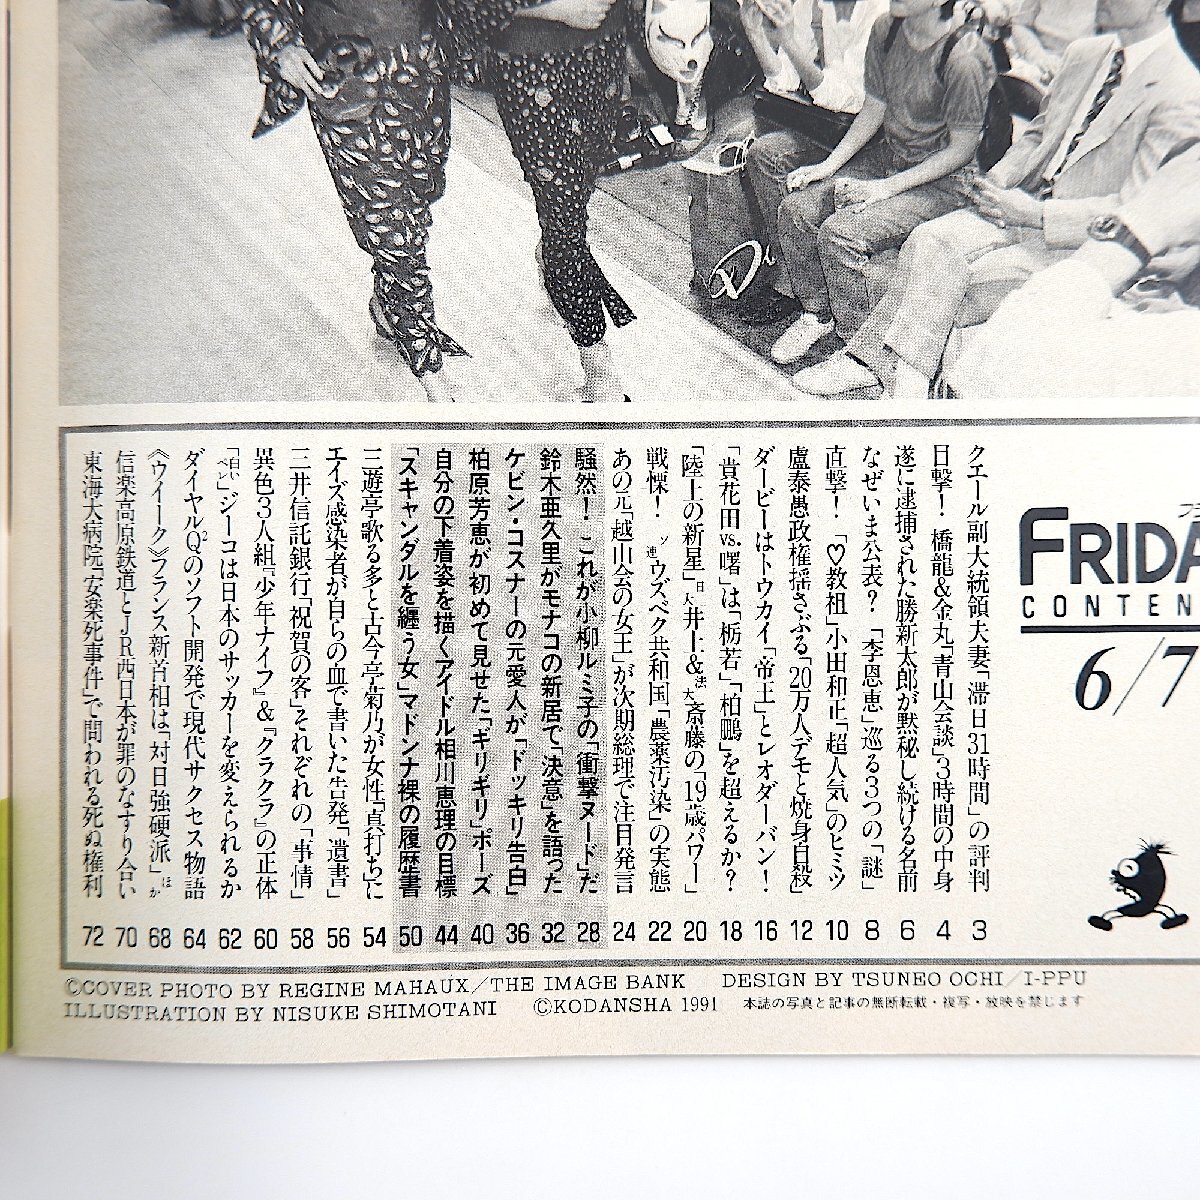 FRIDA
CONTEN
6/7
クエール副大統領夫妻「滞日31時間」の評判 3
目撃! 橋龍&金丸「青山会談」3時間の中身 4
遂に逮捕された勝新太郎が黙秘し続ける名前 6
なぜいま公表?「李恩恵」巡る3つの「謎」 8
直撃!「♡教祖」小田和正「超人気」のヒミツ 10
盧泰愚政権揺さぶる「20万人デモと焼身自殺」 12
ダービーはトウカイ「帝王」とレオダーバン! 16
「貴花田vs.曙」は「栃若」「柏鵬」を超えるか? 18
「陸上の新星」日大井上&法大斎藤の「19歳パワー」 20
戦慄! ソ連ウズベク共和国「農薬汚染」の実態 22
あの元「越山会の女王」が次期総理で注目発言 24
騒然! これが小柳ルミ子の「衝撃ヌード」だ 28
鈴木亜久里がモナコの新居で「決意」を語った 32
ケビン・コスナーの元愛人が「ドッキリ告白」 36
柏原芳恵が初めて見せた「ギリギリ」ポーズ 40
自分の下着姿を描くアイドル相川恵理の目標 44
「スキャンダルを纏う女」マドンナ裸の履歴書 50
三遊亭歌る多と古今亭菊乃が女性「真打ち」に 54
エイズ感染者が自らの血で書いた告発「遺書」 56
三井信託銀行「祝賀の客」それぞれの「事情」 58
異色3人組『少年ナイフ』&『クラクラ』の正体 60
「白いペレ」ジーコは日本のサッカーを変えられるか 62
ダイヤルQ2のソフト開発で現代サクセス物語 64
《ウイーク》フランス新首相は「対日強硬派」ほか 68
信楽高原鉄道とJR西日本が罪のなすり合い 70
東海大病院「安楽死事件」で問われる死ぬ権利 72
©COVER PHOTO BY REGINE MAHAUX/THE IMAGE BANK DESIGN BY TSUNEO OCHI/I-PPU
ILLUSTRATION BY NISUKE SHIMOTANI ©KODANSHA 1991 本誌の写真と記事の無断転載・複写・放映を禁じます